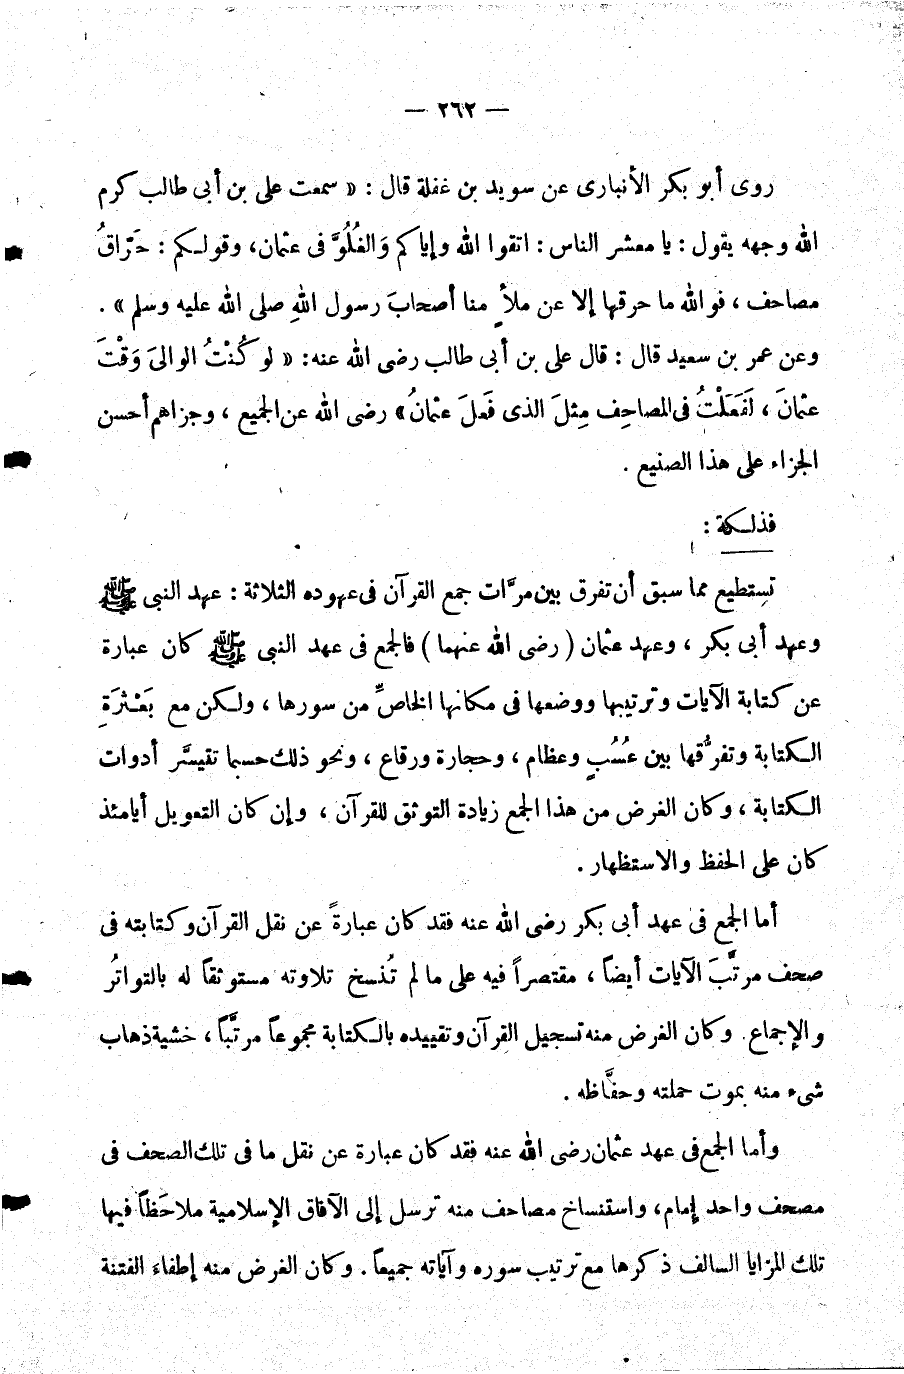 — ٢٦٢ —
روى أبو بكر الأنبارى عن سويد بن غفلة قال : « سمعت على بن أبى طالب كرم
الله وجهه يقول : يا معشر الناس : اتقوا الله وإياكم وَالغُلُوَّ فى عثمان، وقولكم : حَرَّاقُ
مصاحف ، فوالله ما حرقها إلا عن ملأٍ منا أصحابَ رسول اللهِ صلى الله عليه وسلم » .
وعن عمر بن سعيد قال : قال على بن أبى طالب رضى الله عنه: « لو كُنْتُ الوالىَ وَقْتَ
عثمانَ ، لَفَعَلْتُ فى المصاحِف مِثلَ الذى فَعلَ عثمانُ » رضى الله عن الجميع ، وجزاهم أحسن
الجزاء على هذا الصنيع .
فذلكة :
تستطيع مما سبق أن تفرق بين مرَّات جمع القرآن فى عهوده الثلاثة : عهد النبى ﷺ
وعهد أبى بكر ، وعهد عثمان ( رضى الله عنهما ) فالجمع فى عهد النبى ﷺ كان عبارة
عن كتابة الآيات وترتيبها ووضعها فى مكانها الخاصِّ من سورها ، ولكن مع بَعْثرَةِ
الكتابة وتفرُّقها بين عُسُبٍ وعظام ، وحجارة ورقاع ، ونحو ذلك حسبما تقيسَّر أدوات
الكتابة ، وكان الغرض من هذا الجمع زيادة التوثق للقرآن ، وإن كان التعويل أيامئذ
كان على الحفظ والاستظهار .
أما الجمع فى عهد أبى بكر رضى الله عنه فقد كان عبارةً عن نقل القرآن وكتابته فى
صحف مرتَّبَ الآيات أيضاً ، مقتصراً فيه على مالم تُنسخ تلاوته مستوثقاً له بالتواتُر
والإجماع. وكان الغرض منه تسجيل القرآن وتقييده بالكتابة مجموعاً مرتَّباً ، خشية ذهاب
شىء منه بموت حملته وحفَّاظه .
وأما الجمع فى عهد عثمان رضى الله عنه فقد كان عبارة عن نقل ما فى تلك الصحف فى
مصحف واحد إمام، واستنساخ مصاحف منه ترسل إلى الآفاق الإسلامية ملاحَظاً فيها
تلك المزايا السالف ذكرها مع ترتيب سوره وآياته جميعاً . وكان الغرض منه إطفاء الفتنة